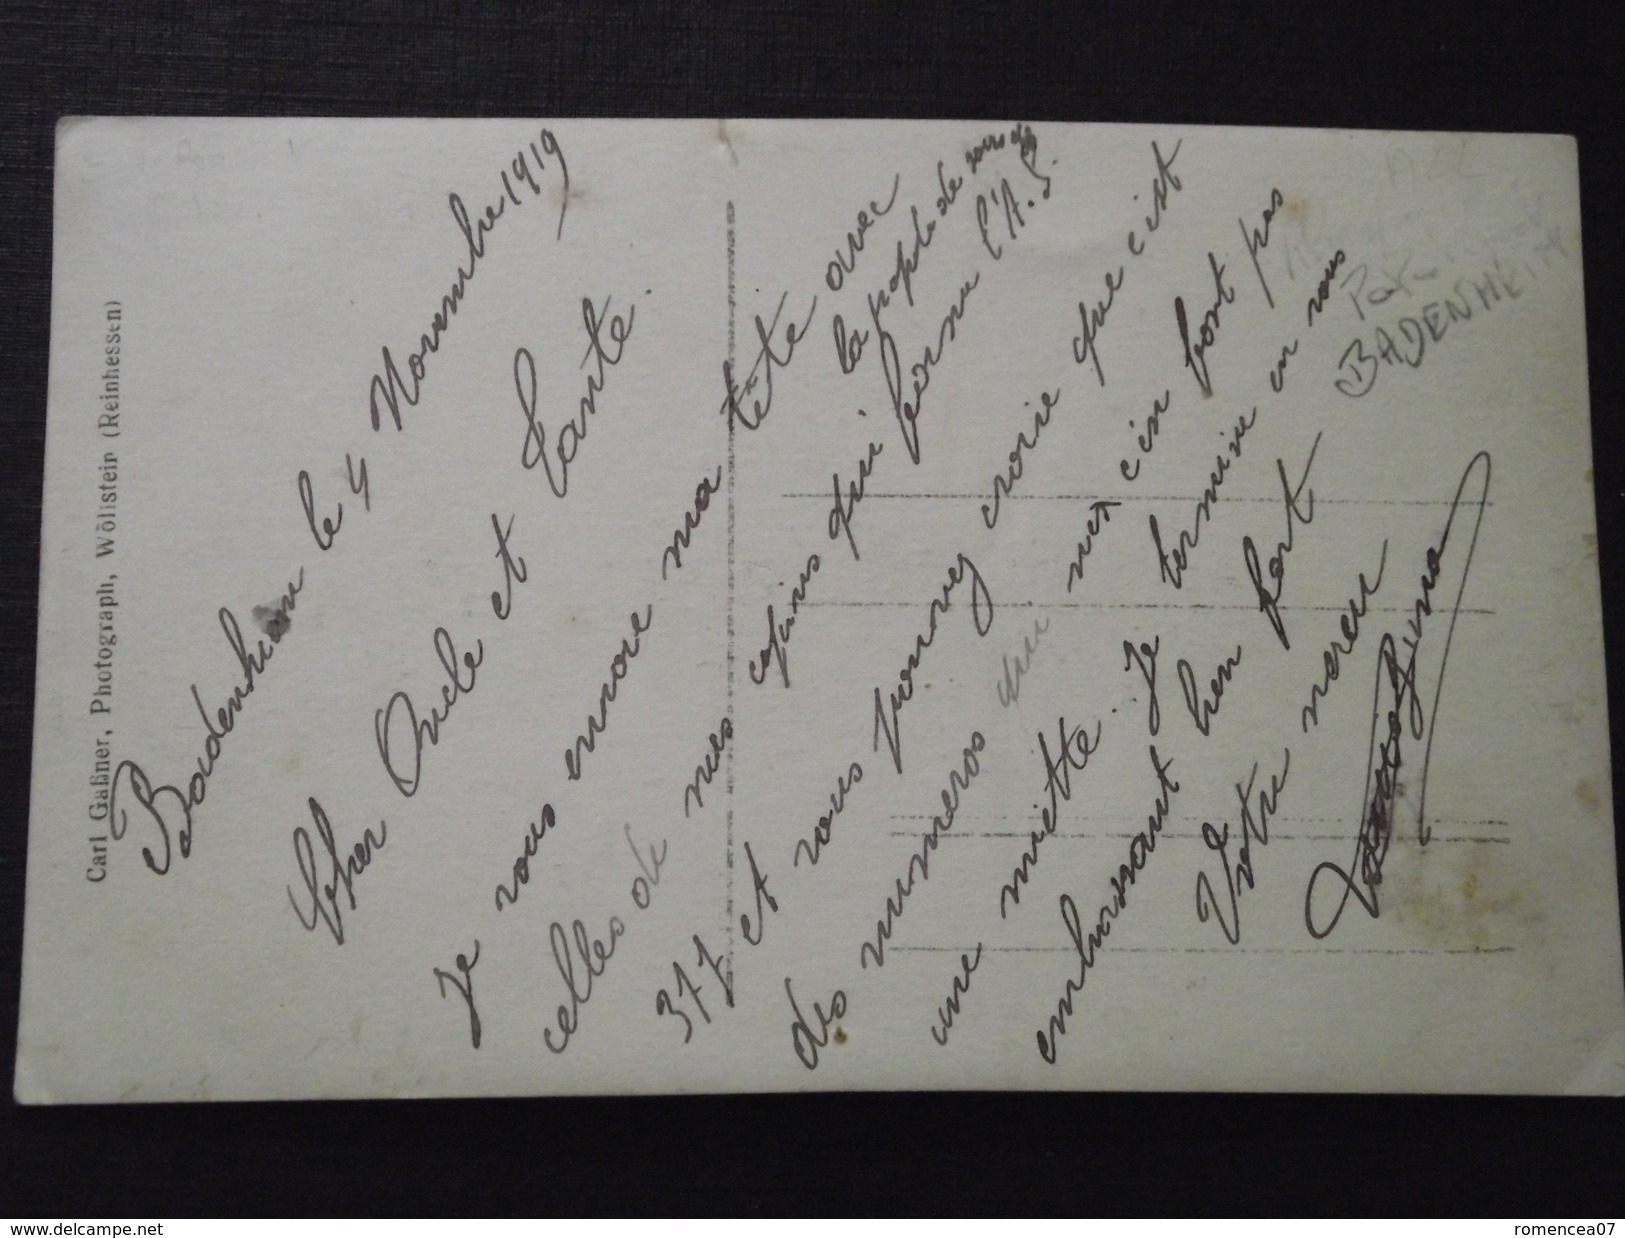 Carl Gaßner, Photograph, Wöllstein (Reinhessen)
Badenheim le 4 Novembre 1919
Cher Oncle et Tante.
Je vous envoie ma tête avec
celles de mes copains qui forme l'A.S
la
377 et vous pouvez croire que c'est
des numeros qui c'in font pas
une miette. Je termine en vous
embrassant bien fort
Votre neveu
BADENHEIM
www.delcampe.net
romencea07